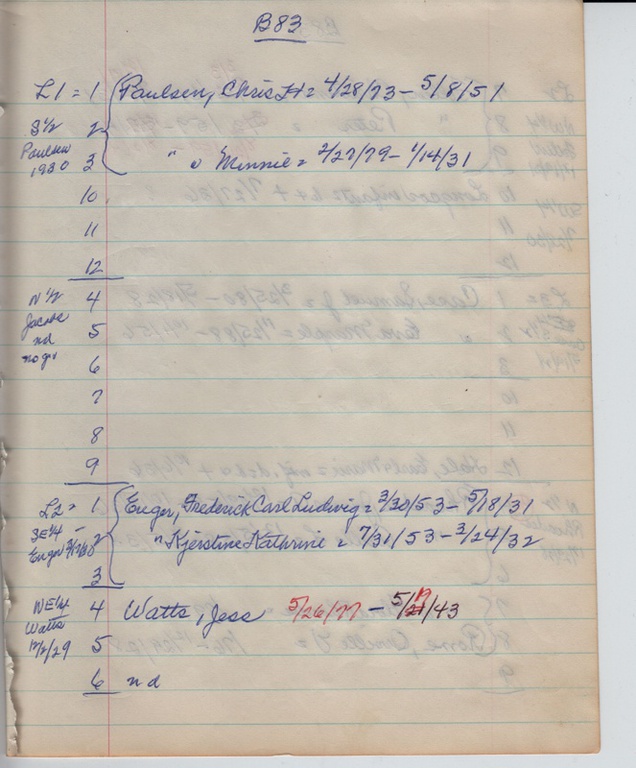 B83
L1 = 1 { Paulsen, Chris H = 4/28/73 - 5/8/51
S 1/2 2
Paulsen 3 " " Minnie = 2/27/79 - 1/14/31
1930
10
11
12
N 1/2 4
Jacobs 5
nd
no gs 6
7
8
9
L2 = 1 { Enger, Frederick Carl Ludwig = 3/30/53 - 5/18/31
SE 1/4 - 2 " Kjerstine Kathrine = 7/31/53 - 3/24/32
Enger
3
NE 1/4 4 Watts, Jess 5/26/77 - 5/19/43
Watts
12/2/29 5
6 nd